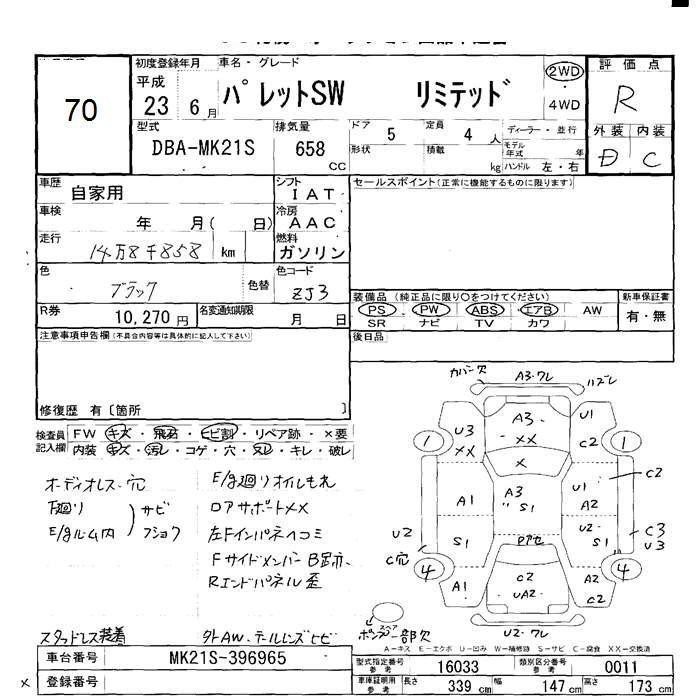 70
初度登録年月
平成
23 6月
車名・グレード
パレットSW リミテッド
2WD
4WD
評価点
R
外装 内装
D C
型式
DBA-MK21S
排気量
658 CC
ドア 5
定員 4人
形状
積載 kg
ディーラー・並行
モデル年式 年
ハンドル 左・右
車歴 自家用
シフト IAT
車検 年 月( 日)
冷房 AAC
走行 14万8千858 km
燃料 ガソリン
色 ブラック
色替
色コード ZJ3
R券 10,270円
名変通知期限 月 日
セールスポイント(正常に機能するものに限ります)
装備品 (純正品に限り○をつけてください)
PS・PW・ABS・エアB AW
SR ナビ TV カワ
新車保証書
有・無
注意事項申告欄(不具合内容等は具体的に記入して下さい)
修復歴 有〔箇所 〕
後日品
検査員記入欄
FW キズ・飛石・ヒビ割・リペア跡・×要
内装 キズ・汚レ・コゲ・穴・スレ・キレ・破レ
オーディオレス・穴
下廻り
E/gルーム内
サビ
フショク
E/g廻りオイルもれ
ロアサポートXX
左Fインパネヘコミ
FサイドメンバーB跡
Rエンドパネル歪
スタッドレス装着
外AW・テールレンズヒビ
カバー欠
A3・ワレ
ハズレ
U3
XX
A3
XX
U1
C2
1
1
X
A1
A3
S1
U1
A2
C2
U2
C穴
S1
U2
S1
C3
U3
4
4
A1
C2
UA2
A2
C2
U2・ワレ
A-キズ E-エクボ U-凹み W-補修跡 S-サビ C-腐食 XX-交換済
車台番号 MK21S-396965
登録番号
X
型式指定番号 参考 16033
類別区分番号 参考 0011
車庫証明用 参考 長さ 339 cm 幅 147 cm 高さ 173 cm